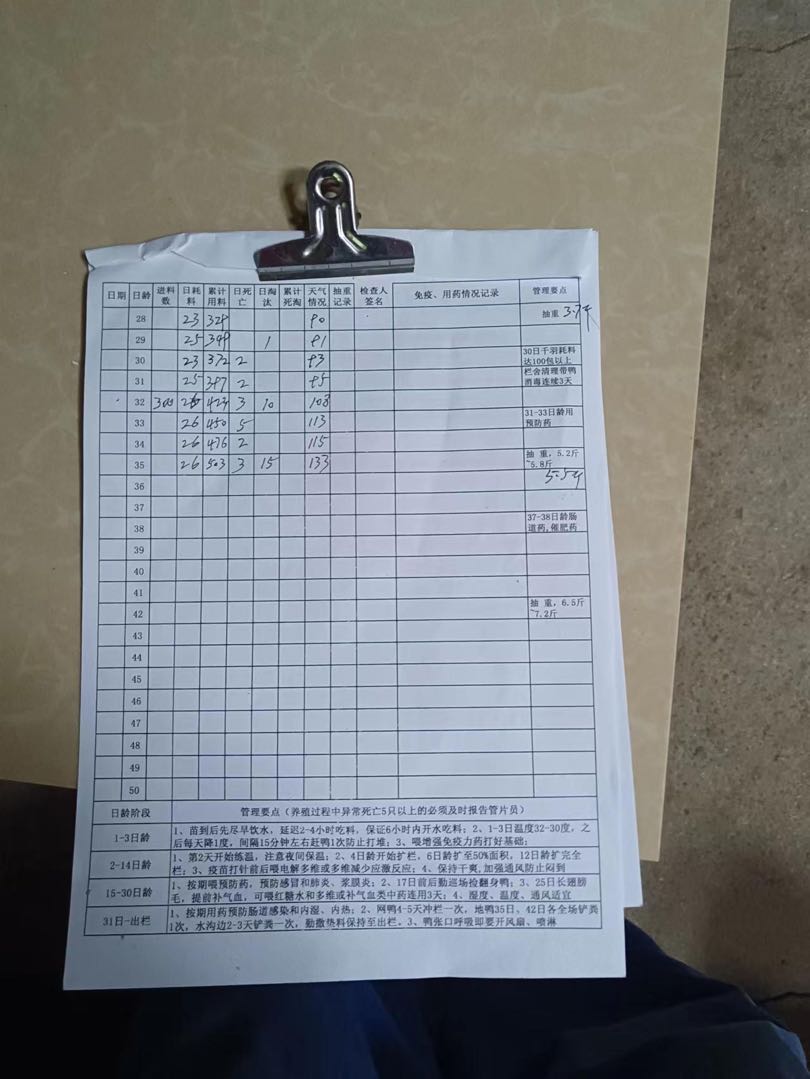 日期 日龄 进料数 日耗料 累计用料 日死亡 日淘汰 累计死淘 天气情况 抽重记录 检查人签名 免疫、用药情况记录 管理要点
28 23 抽重
29 25 1
30 23 372 2 30日千羽耗料达100包以上
31 25 397 2 栏舍清理带鸭消毒连续3天
32 300 423 3 10 108
33 26 450 5 113 31-33日龄用预防药
34 26 476 2 115
35 26 503 3 15 133 抽 重，5.2斤~5.8斤
36 5.5斤
37
38 37-38日龄肠道药,催肥药
39
40
41
42 抽 重，6.5斤~7.2斤
43
44
45
46
47
48
49
50
日龄阶段 管理要点（养殖过程中异常死亡5只以上的必须及时报告管片员）
1-3日龄 1、苗到后先尽早饮水，延迟2-4小时吃料，保证6小时内开水吃料；2、1-3日温度32-30度，之
后每天降1度，间隔15分钟左右赶鸭1次防止打堆；3、喂增强免疫力药打好基础；
2-14日龄 1、第2天开始练温，注意夜间保温；2、4日龄开始扩栏，6日龄扩至50%面积，12日龄扩完全
栏；3、疫苗打针前后喂电解多维或多维减少应激反应；4、保持干爽,加强通风防止闷到
15-30日龄 1、按期喂预防药，预防感冒和肺炎、浆膜炎；2、17日前后勤巡场捡翻身鸭；3、25日长翅膀
毛，提前补气血，可喂红糖水和多维或补气血类中药连用3天；4、湿度、温度、通风适宜
31日-出栏 1、按期用药预防肠道感染和内湿、内热；2、网鸭4-5天冲栏一次，地鸭35日、42日各全场铲粪
1次，水沟边2-3天铲粪一次，勤撒垫料保持至出栏。3、鸭张口呼吸即要开风扇、喷淋